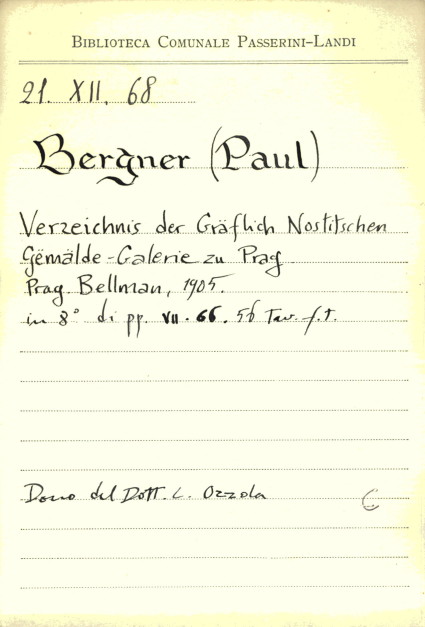 BIBLIOTECA COMUNALE PASSERINI-LANDI
21. XII. 68
Bergner (Paul)
Verzeichnis der Gräflich Nostitschen
Gemälde-Galerie zu Prag
Prag. Bellman, 1905.
in 8° di pp. VII. 66. 56 Tav. f.t.
Dono del Dott. L. Ozzola